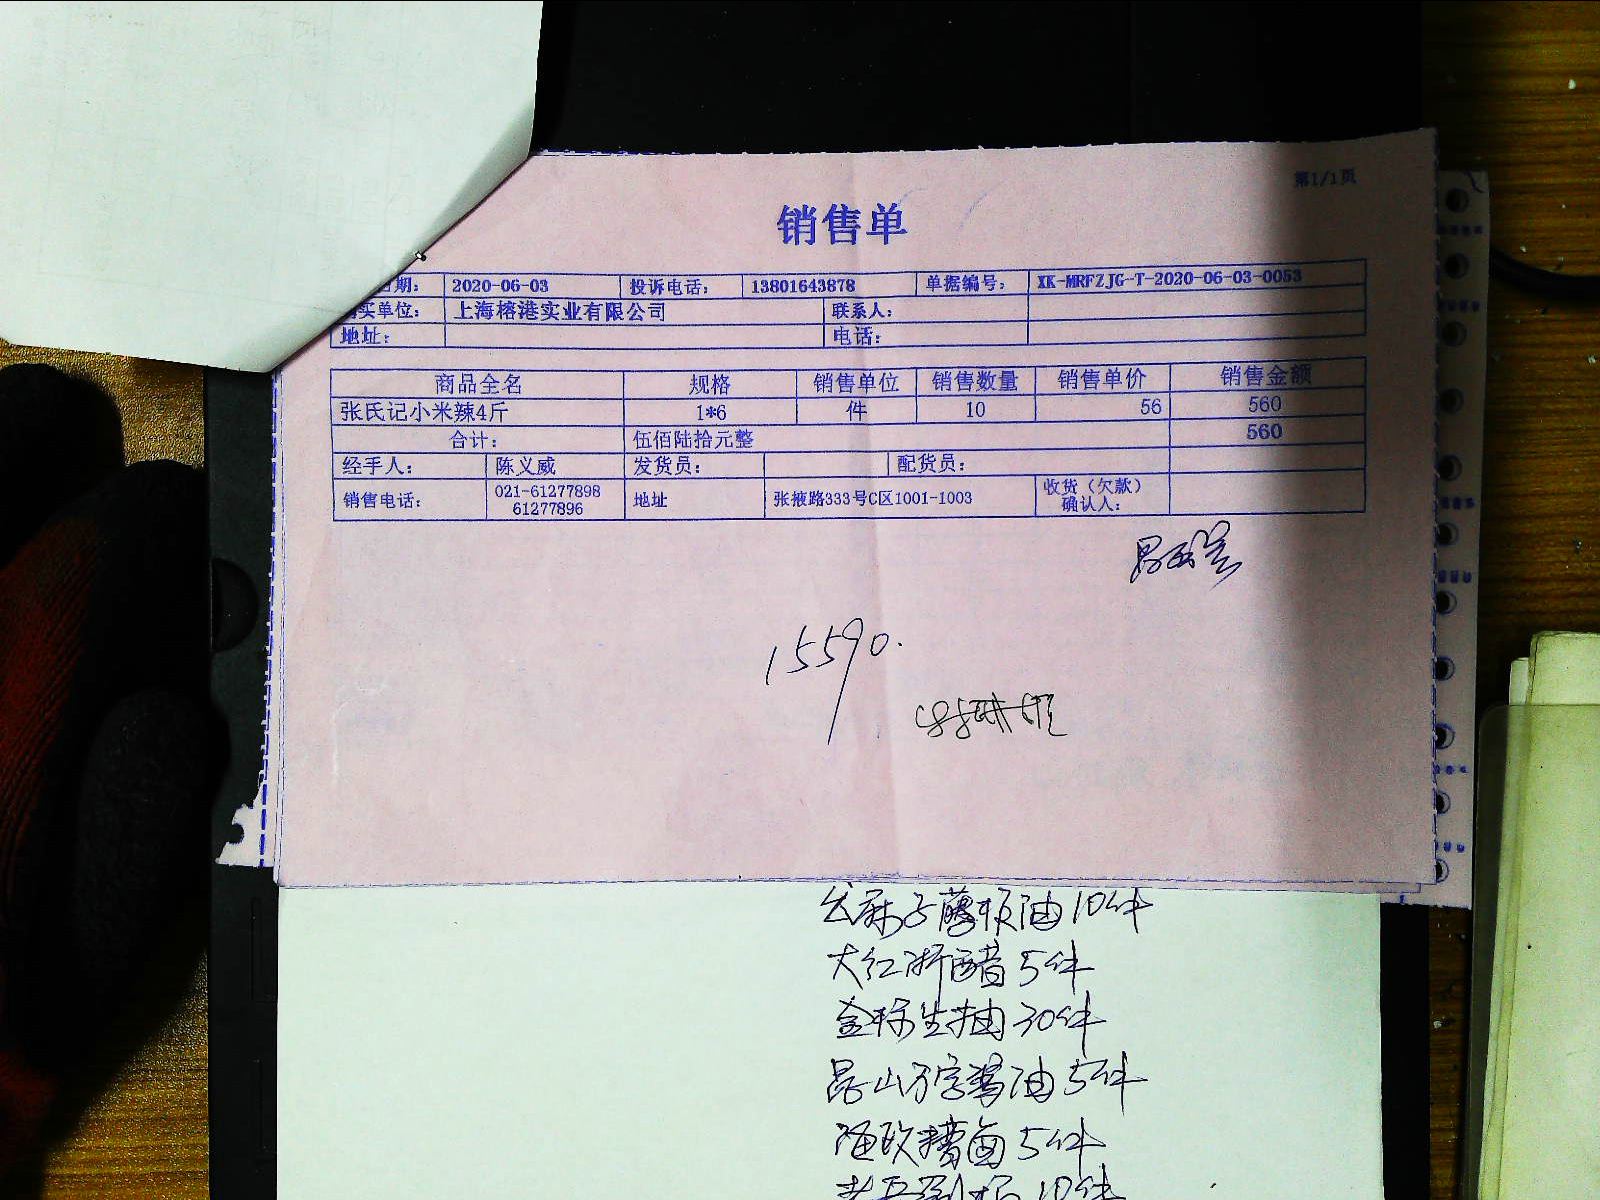 第1/1页
销售单
期： 2020-06-03 投诉电话： 13801643878 单据编号： XK-MRFZJG-T-2020-06-03-0053
买单位： 上海榕港实业有限公司 联系人：
地址： 电话：
商品全名 规格 销售单位 销售数量 销售单价 销售金额
张氏记小米辣4斤 1*6 件 10 56 560
合计： 伍佰陆拾元整 560
经手人： 陈义威 发货员： 配货员：
销售电话： 021-61277898 61277896 地址 张掖路333号C区1001-1003 收货（欠款）确认人：
15590.
10件
大红浙醋5件
金标生抽30件
昆山万字酱油5件
糟卤5件
10件